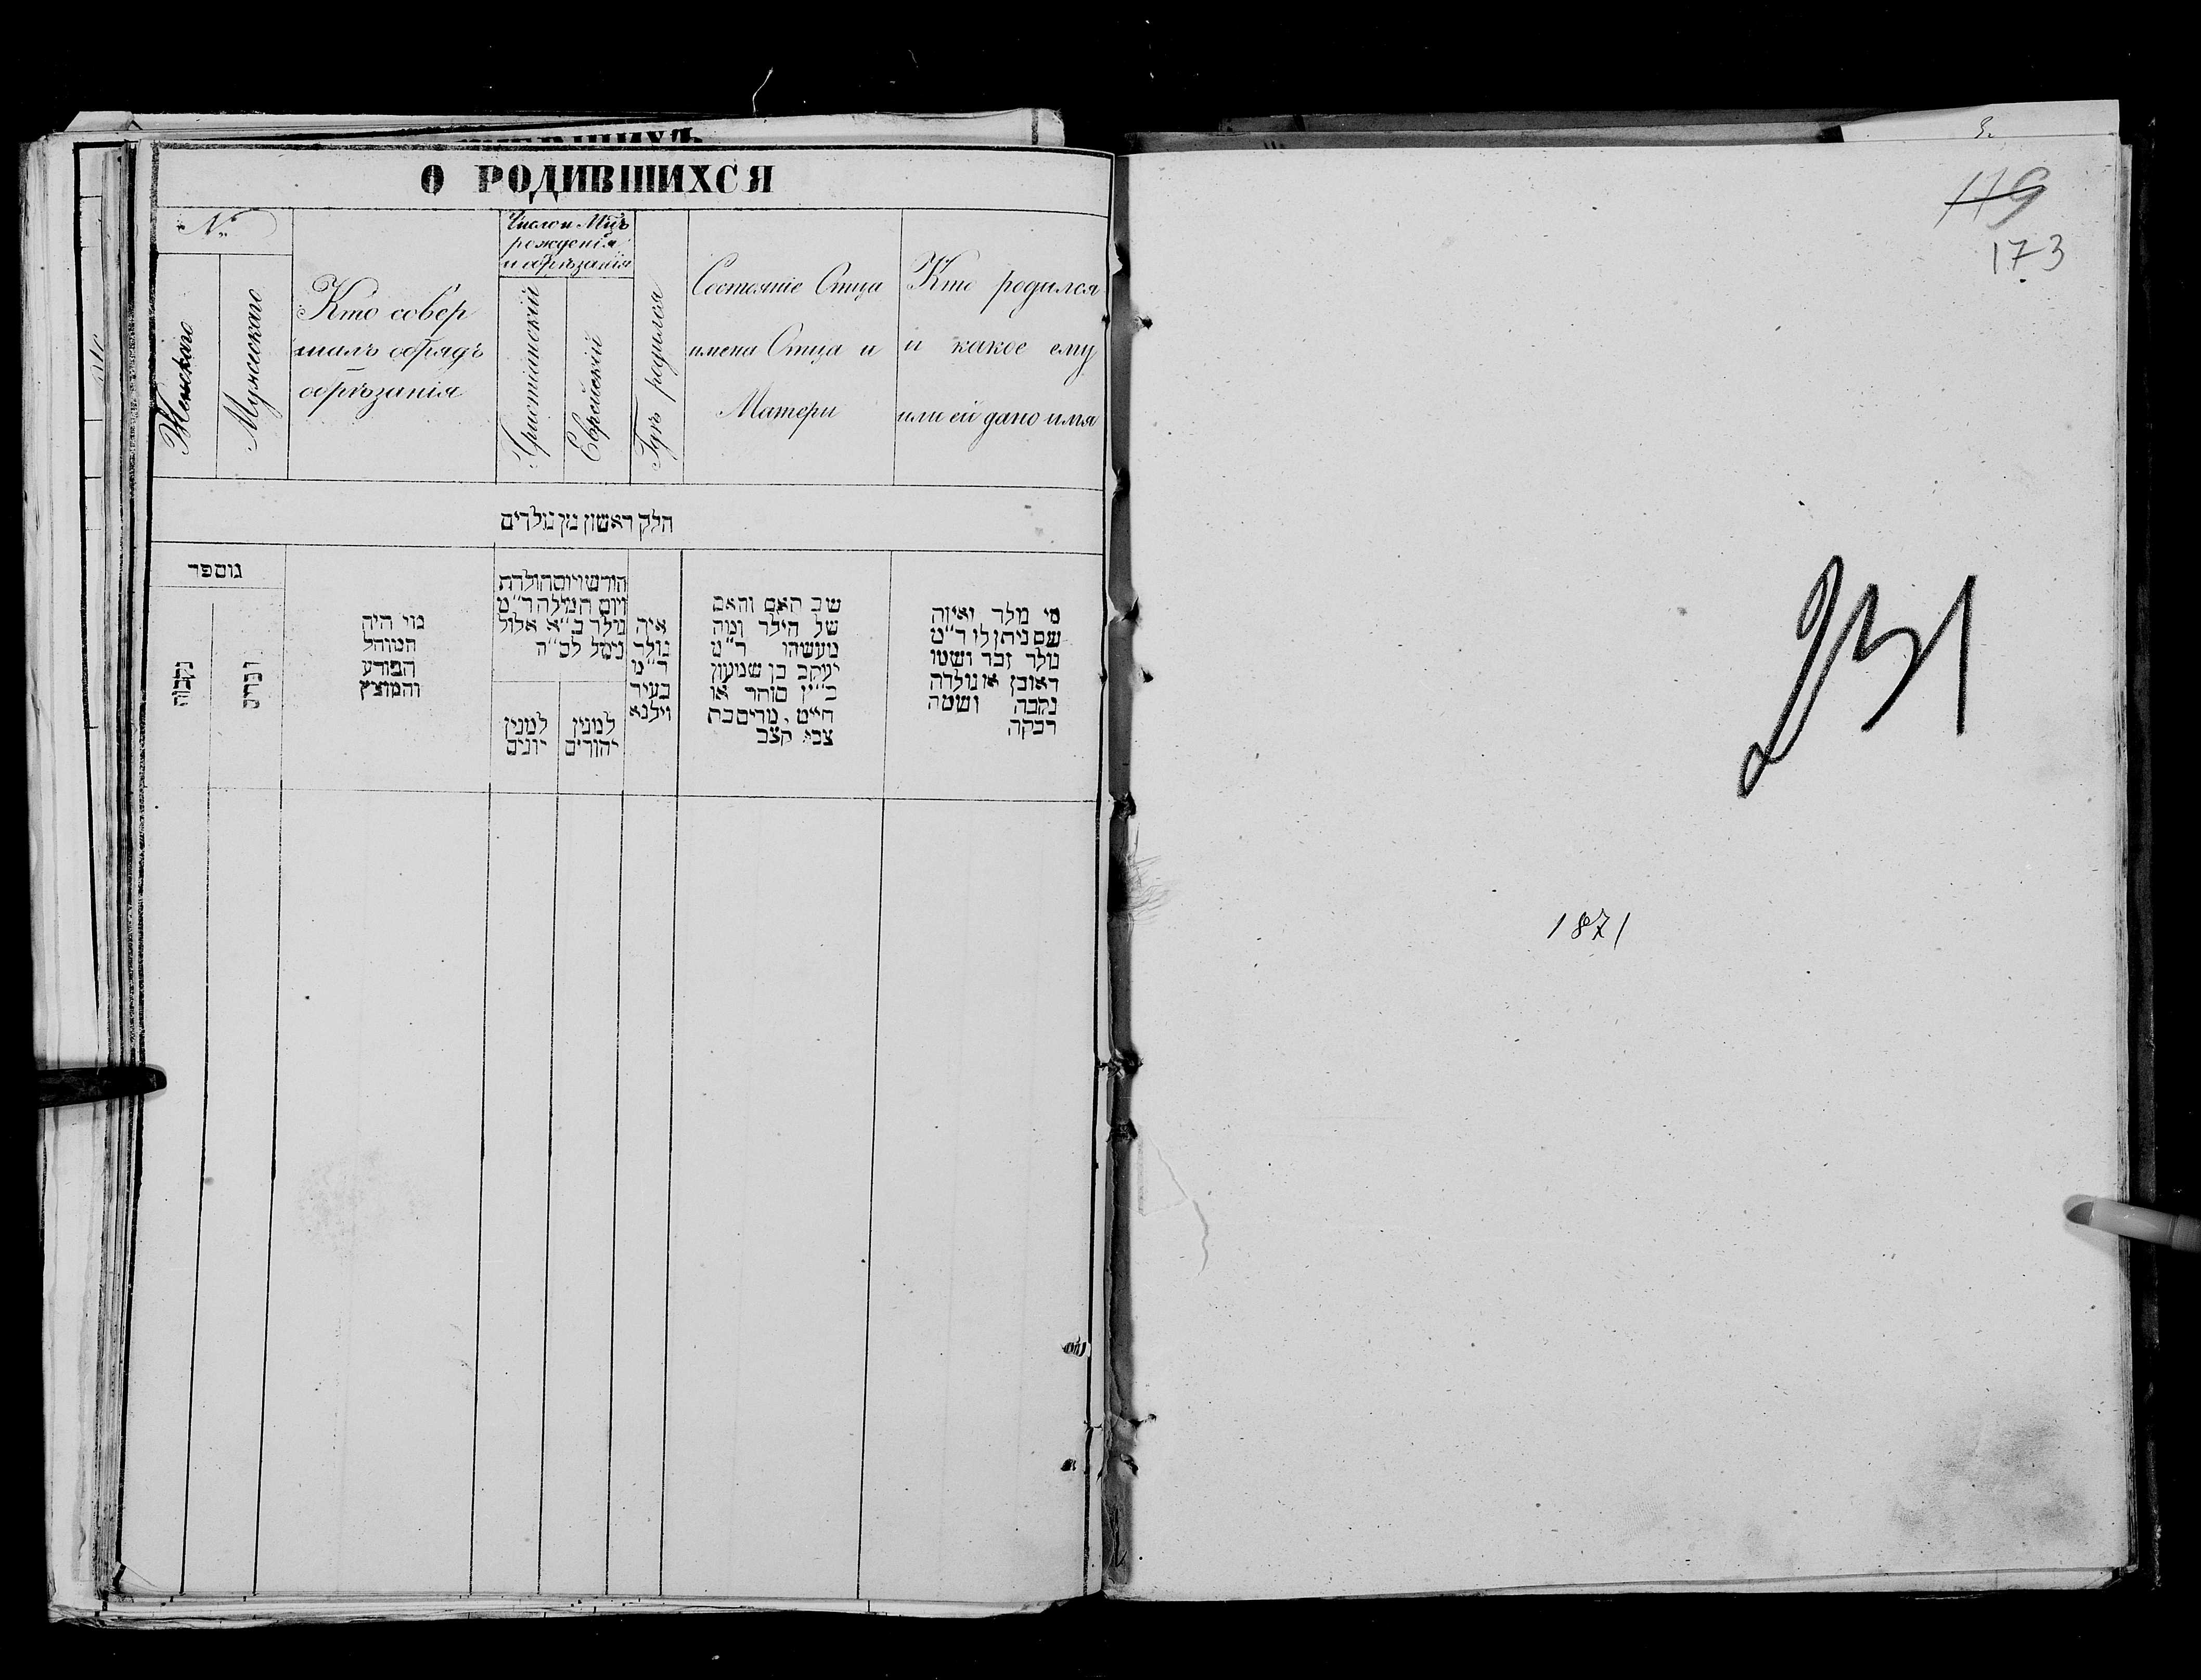 О РОДИВШИХСЯ
№
Женскаго
Мужескаго
Кто совер
шалъ обрядъ
обрѣзанія
Число и Мцъ
рожденія
и обрѣзанія
Христіанскій
Еврейскій
Гдѣ родился
Состояніе Отца
имена Отца и
Матери
Кто родился
и какое ему
или ей дано имя
חלק ראשון מן נולדים
מספר
נקבות
זכרים
מי היה
המוהל
הפורע
והמוצץ
חודש ויום הולדת
ויום המילה ר"מ
נולד כ"א אלול
נימל לס"ה
למנין
יונים
למנין
יהודים
איה
נולד
ד"מ
בעיר
ווילנא
שם האב והאם
של הילד ומה
מעשהו ד"מ
יעקב בן שמעון
כ"ץ סוחר או
חייט, מרים בת
צבי קצב
מי מלד ואיזה
שם ניתן לו ד"מ
נולד זכר ושמו
ראובן או נולדה
נקבה ושמה
רבקה
119
173
1871